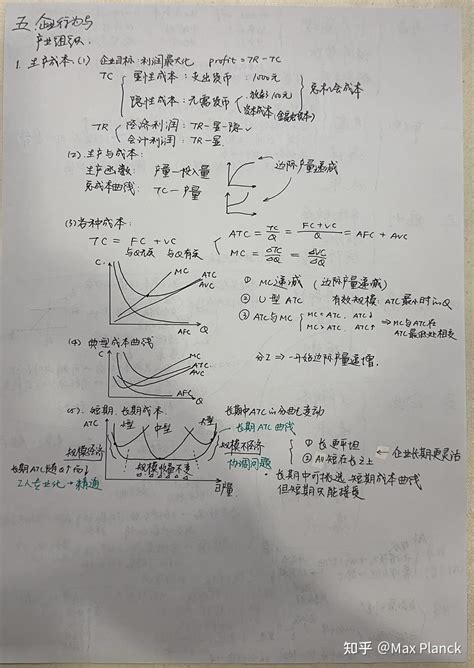 五. 企业行为与
产业组织.
1. 生产成本. (1) 企业目标: 利润最大化 profit = TR - TC
TC 显性成本: 支出货币 1000元
隐性成本: 无需货币 机会成本
TR 经济利润: TR-显-隐
会计利润: TR-显
(2) 生产与成本:
生产函数: 产量—投入量 边际产量递减
总成本曲线: TC—产量
(3) 各种成本:
TC = FC + VC
与Q无关 与Q有关
ATC = TC/Q = FC+VC/Q = AFC + AVC
MC = ΔTC/ΔQ = ΔVC/ΔQ
C. MC ATC AVC AFC Q
① MC递减 (边际产量递减)
② U型 ATC 有效规模: ATC最小时的Q
③ ATC与MC MC<ATC. ATC↓ MC>ATC. ATC↑ ⇒ MC与ATC在ATC最低处相交
(4) 典型成本曲线
C MC ATC AVC AFC Q
一开始边际产量递增.
(5). 短期. 长期成本
ATC 小型 中型 大型
长期中ATC的
长期ATC曲线
规模经济 规模不经济
规模 不变
协调问题
① 长更平坦
② All 短在长之上
企业长期更灵活
长期ATC随Q↑而↓
工人专业化→精通
产量
长期中可挑选 短期成本曲线
但短期只能接受
知乎 @Max Planck